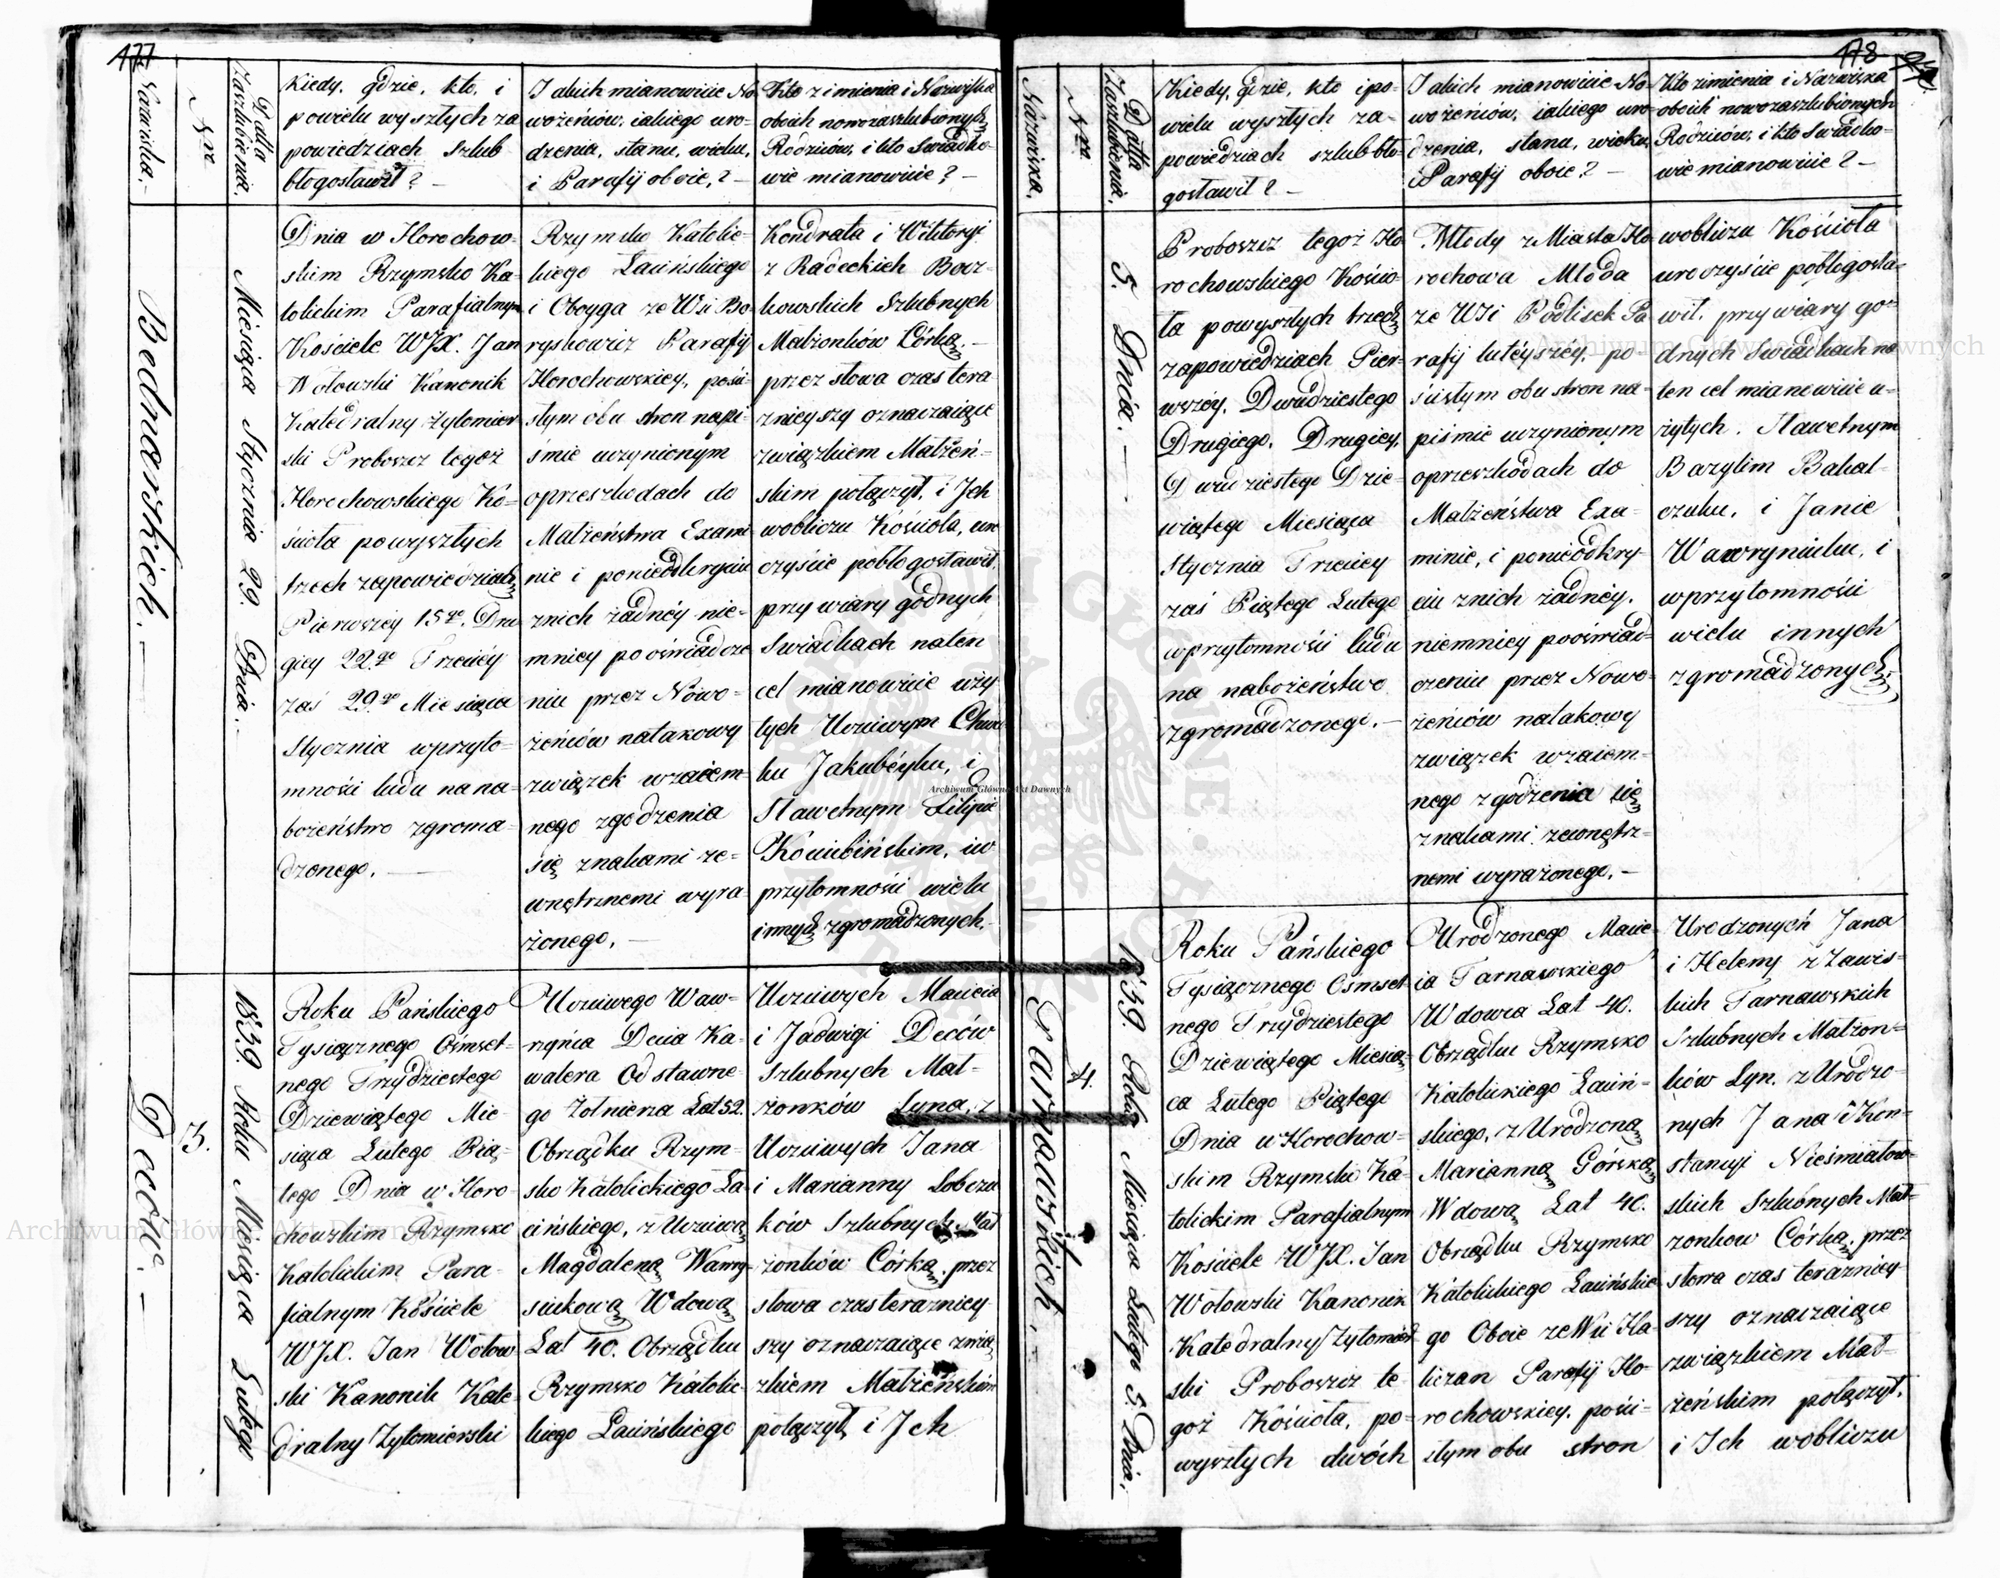 177
Nazwiska.
Nr
Datta
Zaszlubienia.
Kiedy, gdzie, kto, i
powielu wyszłych za
powiedziach Szlub
błogosławił? —
Jakich mianowicie No
wożeńiów, iakiego uro-
dzenia, stanu, wieku,
i Parafij oboie,? —
Kto z imienia i Nazwiska
oboich nowozaszlubionych
Rodziców, i kto Swiadko-
wie mianowicie? —
Bednarskich. —
Miesiąca Stycznia 29. Dnia.
Dnia w Horochow-
skim Rzymsko Ka-
tolickim Parafialnym
Kościele WJX. Jan
Wołowski Kanonik
Katedralny Żytomier
ski Proboszcz tegoż
Horochowskiego Ko-
ścioła powyszłych
trzech zapowiedziach
Pierwszey 15go, Dru
giey 22go Trzeciey
zaś 29go Miesiąca
Stycznia wprzyto-
mności ludu na na-
bożeństwo zgroma-
dzonego. —
Rzymsko Katolic-
kiego Łacińskiego
i Oboyga ze Wsi Bo-
ryskowicz Parafij
Horochowskiey, pości-
słym obu stron napi-
śmie uczynionym
oprzeszkodach do
Małżeństwa Exami
nie i ponieodkryciu
znich żadnéy nie-
mniey po oświadcze
niu przez Nowo-
żeńców natakowy
związek wzaiem-
nego zgodzenia
się znakami ze-
wnętrznemi wyra-
żonego. —
Kondrata i Wiktoryi
z Radeckich Bocz-
kowskich Szlubnych
Małżonków Córką, —
przez słowa czas tera
znieyszy oznaczaiące
związkiem Małżeń-
skim połączył, i Ich
wobliczu Kościoła, uro
czyście pobłogosławił,
przy wiary godnych
Swiadkach naten
cel mianowicie uży
tych Uczciwym
ku Jakubéyku, i
Sławetnym Filipie
Kociubińskim, iw
przytomności wielu
innych zgromadzonych.
Deców. —
3.
1839 Roku Miesiąca Lutego
Roku Pańskiego
Tysiącznego Osmset-
nego Trzydziestego
Dziewiątego Mie-
siąca Lutego Pią-
tego Dnia w Horo-
chowskim Rzymsko
Katolickim Para-
fialnym Kościele
WJX. Jan Wołow
ski Kanonik Kate-
dralny Żytomierski
Uczciwego Waw-
rzyńca Deca Ka-
walera Odstawne-
go Żołnierza Lat 52.
Obrządku Rzym-
sko Katolickiego Ła-
cińskiego, z Uczciwą
Magdaleną Wawrzy-
siukową Wdową
Lat 40. Obrządku
Rzymsko Katolic-
kiego Łacińskiego
Uczciwych Macieia
i Jadwigi Deców
Szlubnych Mał-
żonków Syna, z
Uczciwych Jana
i Marianny Sobcza
ków Szlubnych Mał
żonków Córką, przez
słowa czas terazniey
szy oznaczaiące zwią
zkiem Małżeńskim
połączył, i Ich
178
Nazwiska.
Nr
Datta
Zaszlubienia.
Kiedy, gdzie, kto i po-
wielu wyszłych za-
powiedziach szlub bło-
gosławił? —
Jakich mianowicie No
wożeńiów, iakiego uro
dzenia, stanu, wieku,
i Parafij oboie? —
Kto zimienia i Nazwiska
oboich nowozaszlubionych
Rodziców, i kto Swiadko-
wie mianowicie? —
5. Dnia. —
Proboszcz tegoż Ho
rochowskiego Kościo-
ła powyszłych trzech
zapowiedziach Pier-
wszéy, Dwudziestego
Drugiego, Drugiey,
Dwudziestego Dzie-
wiątego Miesiąca
Stycznia Trzeciey
zaś Piątego Lutego
wprzytomności ludu
na nabożeństwo
zgromadzonego. —
Młody z Miasta Ho-
rochowa Młoda
ze Wsi Podlisek Pa
rafij tutéyszéy, po-
ścisłym obu stron na-
piśmie uczynionym
oprzeszkodach do
Małżeństwa Exa-
minie, i ponieodkry-
ciu znich żadnéy,
niemniey pooświad-
czeniu przez Nowo-
żeńców natakowy
związek wzaiem-
nego zgodzenia się
znakami zewnętrz-
nemi wyrażonego. —
wobliczu Kościoła
uroczyście pobłogosła-
wił, przy wiary go-
dnych Swiadkach na
ten cel mianowicie u-
żytych, Sławetnym
Bazylim Bakal-
czuku, i Janie
Wawryniuku, i
wprzytomności
wielu innych
zgromadzonych.
Tarnawskich. —
4.
1839. Roku Miesiąca Lutego 5. Dnia.
Roku Pańskiego
Tysiącznego Osmset
nego Trzydziestego
Dziewiątego Miesią-
ca Lutego Piątego
Dnia w Horochow-
skim Rzymsko Ka-
tolickim Parafialnym
Kościele WJX. Jan
Wołowski Kanonik
Katedralny Żytomier
ski Proboszcz te-
goż Kościoła, po-
wyszłych dwóch
Urodzonego Macie-
ia Tarnawskiego
Wdowca Lat 40.
Obrządku Rzymsko
Katolickiego Łaciń-
skiego, z Urodzoną
Marianną Górską
Wdową Lat 40.
Obrządku Rzymsko
Katolickiego Łacińskie
go Oboie ze Wsi Ha-
liczan Parafij Ho-
rochowskiey, pości-
słym obu stron
Urodzonych Jana
i Heleny z Zawis-
kich Tarnawskich
Szlubnych Małżon-
ków Syn. z Urodzo-
nych Jana i Kon-
stancyi Nieśmiałow-
skich Szlubnych Mał-
żonkow Córką, przez
słowa czas teraźniey
szy oznaczaiące
związkiem Mał-
żeńskim połączył,
i Ich wobliczu
Archiwum Główne Akt Dawnych
Archiwum Główne Akt Dawnych
Archiwum Główne Akt Dawnych